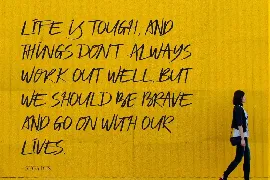 LIFE IS TOUGH, AND
THINGS DON'T ALWAYS
WORK OUT WELL, BUT
WE SHOULD BE BRAVE
AND GO ON WITH OUR
LIVES.